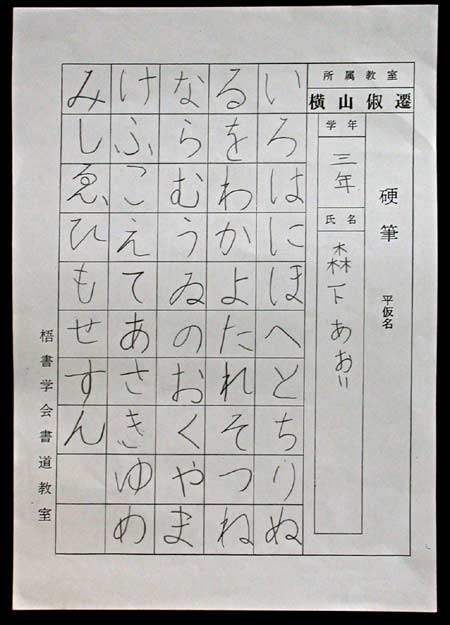 所属教室
横山俶遷
硬筆
平仮名
学年
三年
氏名
森下あおい
いろはにほへとちりぬ
るをわかよたれそつね
ならむうゐのおくやま
けふこえてあさきゆめ
みしゑひもせすん
梧書学会書道教室